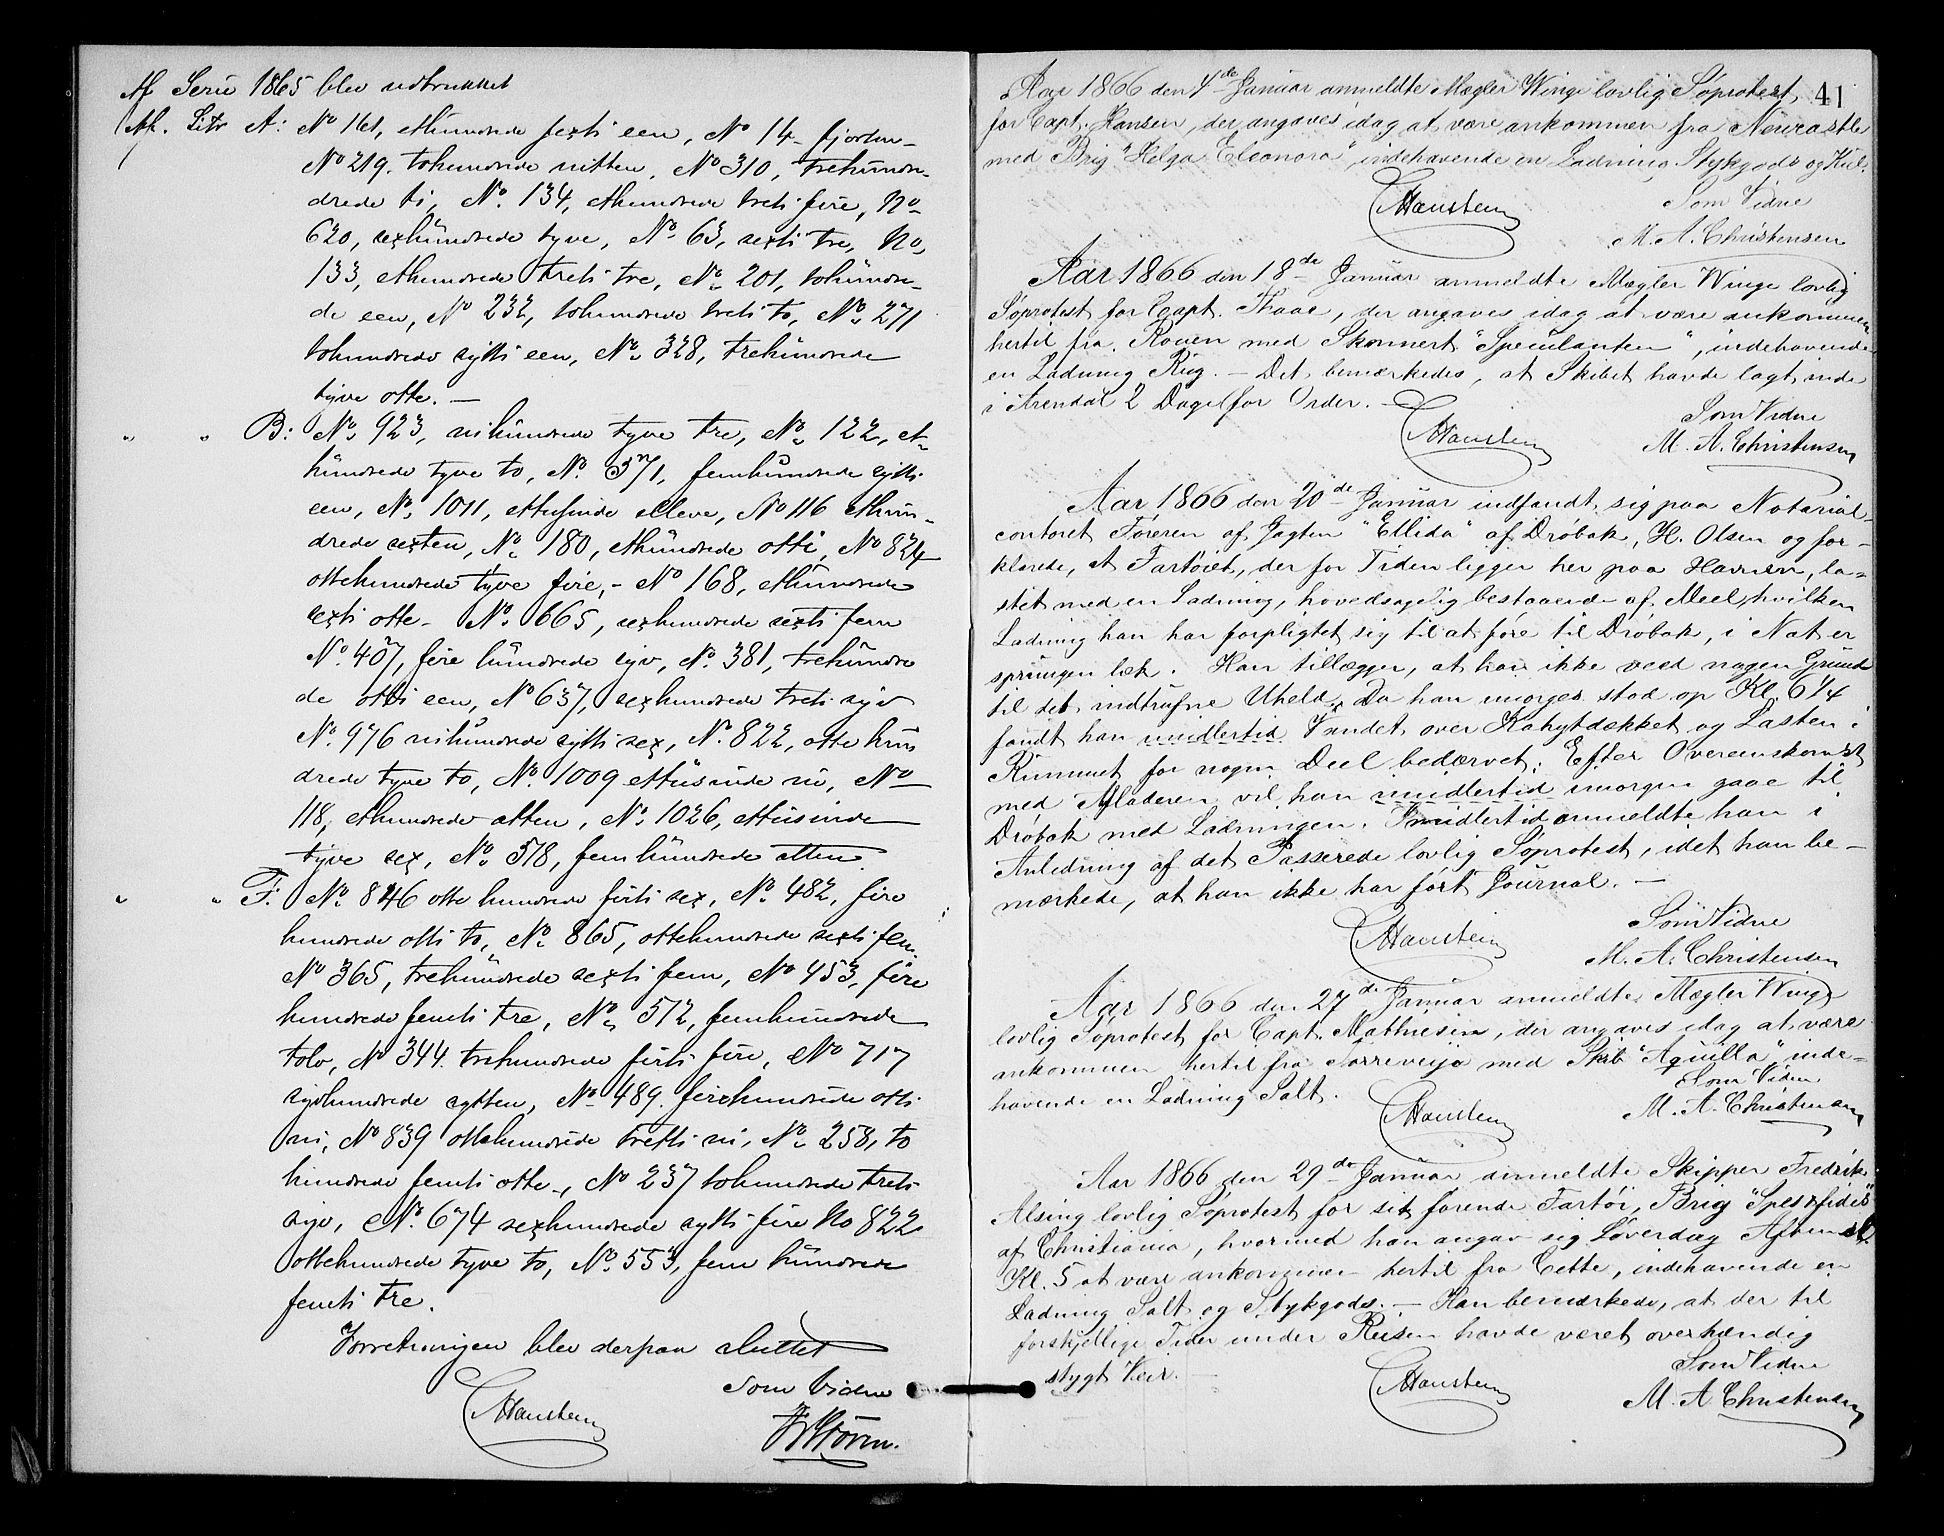 Af Serie 1865 blev udtrukket
Af. Litr A: No 161, ethundrede sexti een, No 14 fjorten
No 219. tohundrede nitten, No 310, trehundre-
drede ti, No. 134, ethundrede treti fire, No
620, sexhundrede tyve, No 63, sexti tre, No,
133, ethundrede treti tre, No 201, tohundre-
de een, No 232, tohundrede treti to, No 271
tohundrede sytti een, No 328, trehundrede
tyve otte. —
" " B: No 923, nihundrede tyve tre, No 122, et-
hundrede tyve to, No. 571, femhundrede sytti
een, No 1011, ettusinde elleve, No 116 ethun-
drede sexten, No 180, ethundrede otti, No 824
ottehundrede tyve fire, - No 168, ethundrede
sexti otte - No 665, sexhundrede sexti fem
No. 407, fire hundrede syv, No. 381, trehundre
de otti een, No 637, sexhundrede treti syv
No. 976 nihundrede sytti sex, No. 822, otte hun
drede tyve to, No. 1009 ettusinde ni, No
118, ethundrede atten, No 1026, ettusinde
tyve sex, No 518, fem hundrede atten
" " F: No 846 otte hundrede firti sex, No 482, fire
hundrede otti to, No 865, ottehundrede sexti fem
No 365, trehundrede sexti fem, No 453, fire
hundrede femti tre, No 512, femhundrede
tolv, No 344. trehundrede firti fire, No 717
syvhundrede sytten, No 489. firehundrede otti
ni, No 839 ottehundrede tretti ni, No 258, to
hundrede femti otte -, No 237 tohundrede treti
syv, No. 674 sexhundrede sytti fire No 822
ottehundrede tyve to, No. 553, fem hundrede
femti tre.
Forretningen blev derpaa sluttet
Som Vidne
Hansteen

41
Aar 1866 den 4de Januar anmeldte Mægler Winge lovlig Søprotest
for Capt. Hansen, der angaves idag at være ankommen fra Newcastle
med Brig "Helga Eleonora", indehavende en Ladning Stykgods og Kul.
Hansteen Som Vidne
M. A. Christensen
Aar 1866 den 18de Januar anmeldte Mægler Winge lovlig
Søprotest for Capt. , der angaves idag at være ankommen
hertil fra Rouen med Skonnert "Speculanten", indehavende
en Ladning Rug. — Det bemærkedes, at Skibet havde lagt inde
i Arendal 2 Dage for Order. —
Hansteen Som Vidne
M. A. Christensen
Aar 1866 den 20de Januar indfandt sig paa Notarial-
contoret Føreren af Jagten "Ellida" af Drøbak, H. Olsen og for-
klarede, at Fartøiet, der for Tiden ligger her paa Havnen, la-
stet med en Ladning, hovedsagelig bestaaende af Meel, hvilken
Ladning han har forpligtet sig til at føre til Drøbak, i Nat er
sprungen læk. Han tillægger, at han ikke veed nogen Grund
til det indtrufne Uheld. Da han imorges stod op Kl. 6 1/4
fandt han imidlertid Vandet over Kahytdækket og Lasten i
Rummet for nogen Deel bedærvet. Efter Overenskomst
med Afladeren vil han imidlertid imorgen gaae til
Drøbak med Ladningen. Imidlertid anmeldte han i
Anledning af det Passerede lovlig Søprotest, idet han be-
mærkede, at han ikke har ført Journal. —
Hansteen Som Vidne
M. A. Christensen
Aar 1866 den 27de Januar anmeldte Mægler Winge
lovlig Søprotest for Capt. Mathiesen, der angaves idag at være
ankommen hertil fra Torrevieja med Skib "Aquilla", inde-
havende en Ladning Salt.
Hansteen Som Vidne
M. A. Christensen
Aar 1866 den 29de Januar anmeldte Skipper Fredrik
Alsing lovlig Søprotest for sit førende Fartøi, Brig "Spes & fides"
af Christiania, hvormed han angav sig Løverdag Aften
Kl. 5 at være ankommen hertil fra Cette, indehavende en
Ladning Salt og Stykgods. — Han bemærkede, at der til
forskjellige Tider under Reisen havde været overhændig
stygt Veir. —
Hansteen Som Vidne
M. A. Christensen